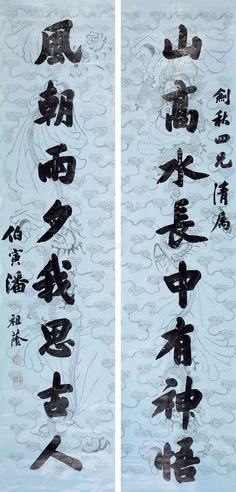 劍秋四兄清屬
山高水長中有神悟
風朝雨夕我思古人
伯寅潘祖蔭